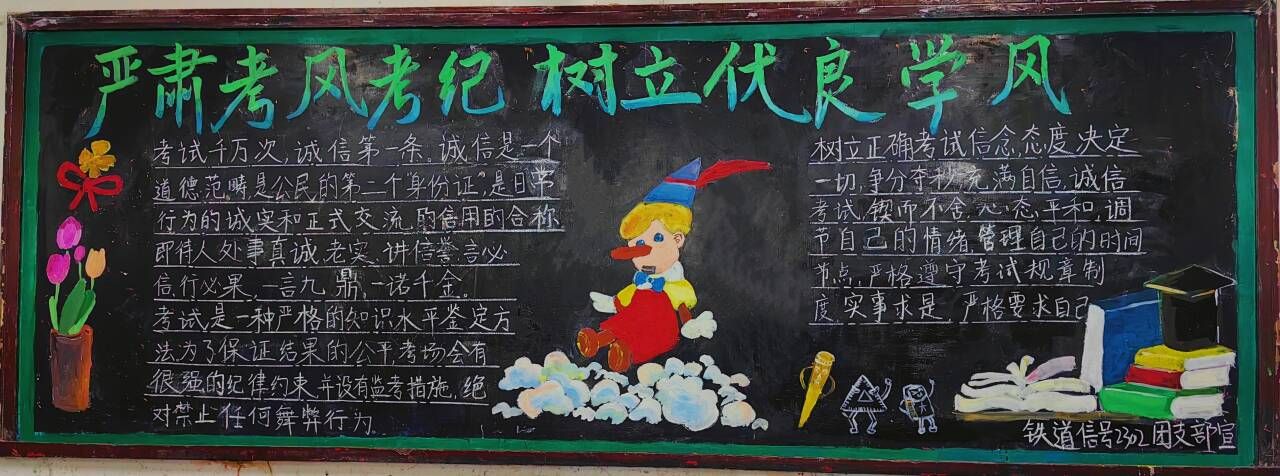 严肃考风考纪 树立优良学风
考试千万次,诚信第一条。诚信是一个
道德范畴是公民的第二个"身份证",是日常
行为的诚实和正式交流的信用的合称
即待人处事真诚、老实、讲信誉,言必
信行必果,一言九鼎,一诺千金。
考试是一种严格的知识水平鉴定方
法,为了保证结果的公平,考场会有
很强的纪律约束,并设有监考措施,绝
对禁止任何舞弊行为.
树立正确考试信念,态度决定
一切,争分夺秒,充满自信,诚信
考试,锲而不舍,心态平和,调
节自己的情绪,管理自己的时间
节点,严格遵守考试规章制
度,实事求是,严格要求自己
铁道信号2302团支部宣